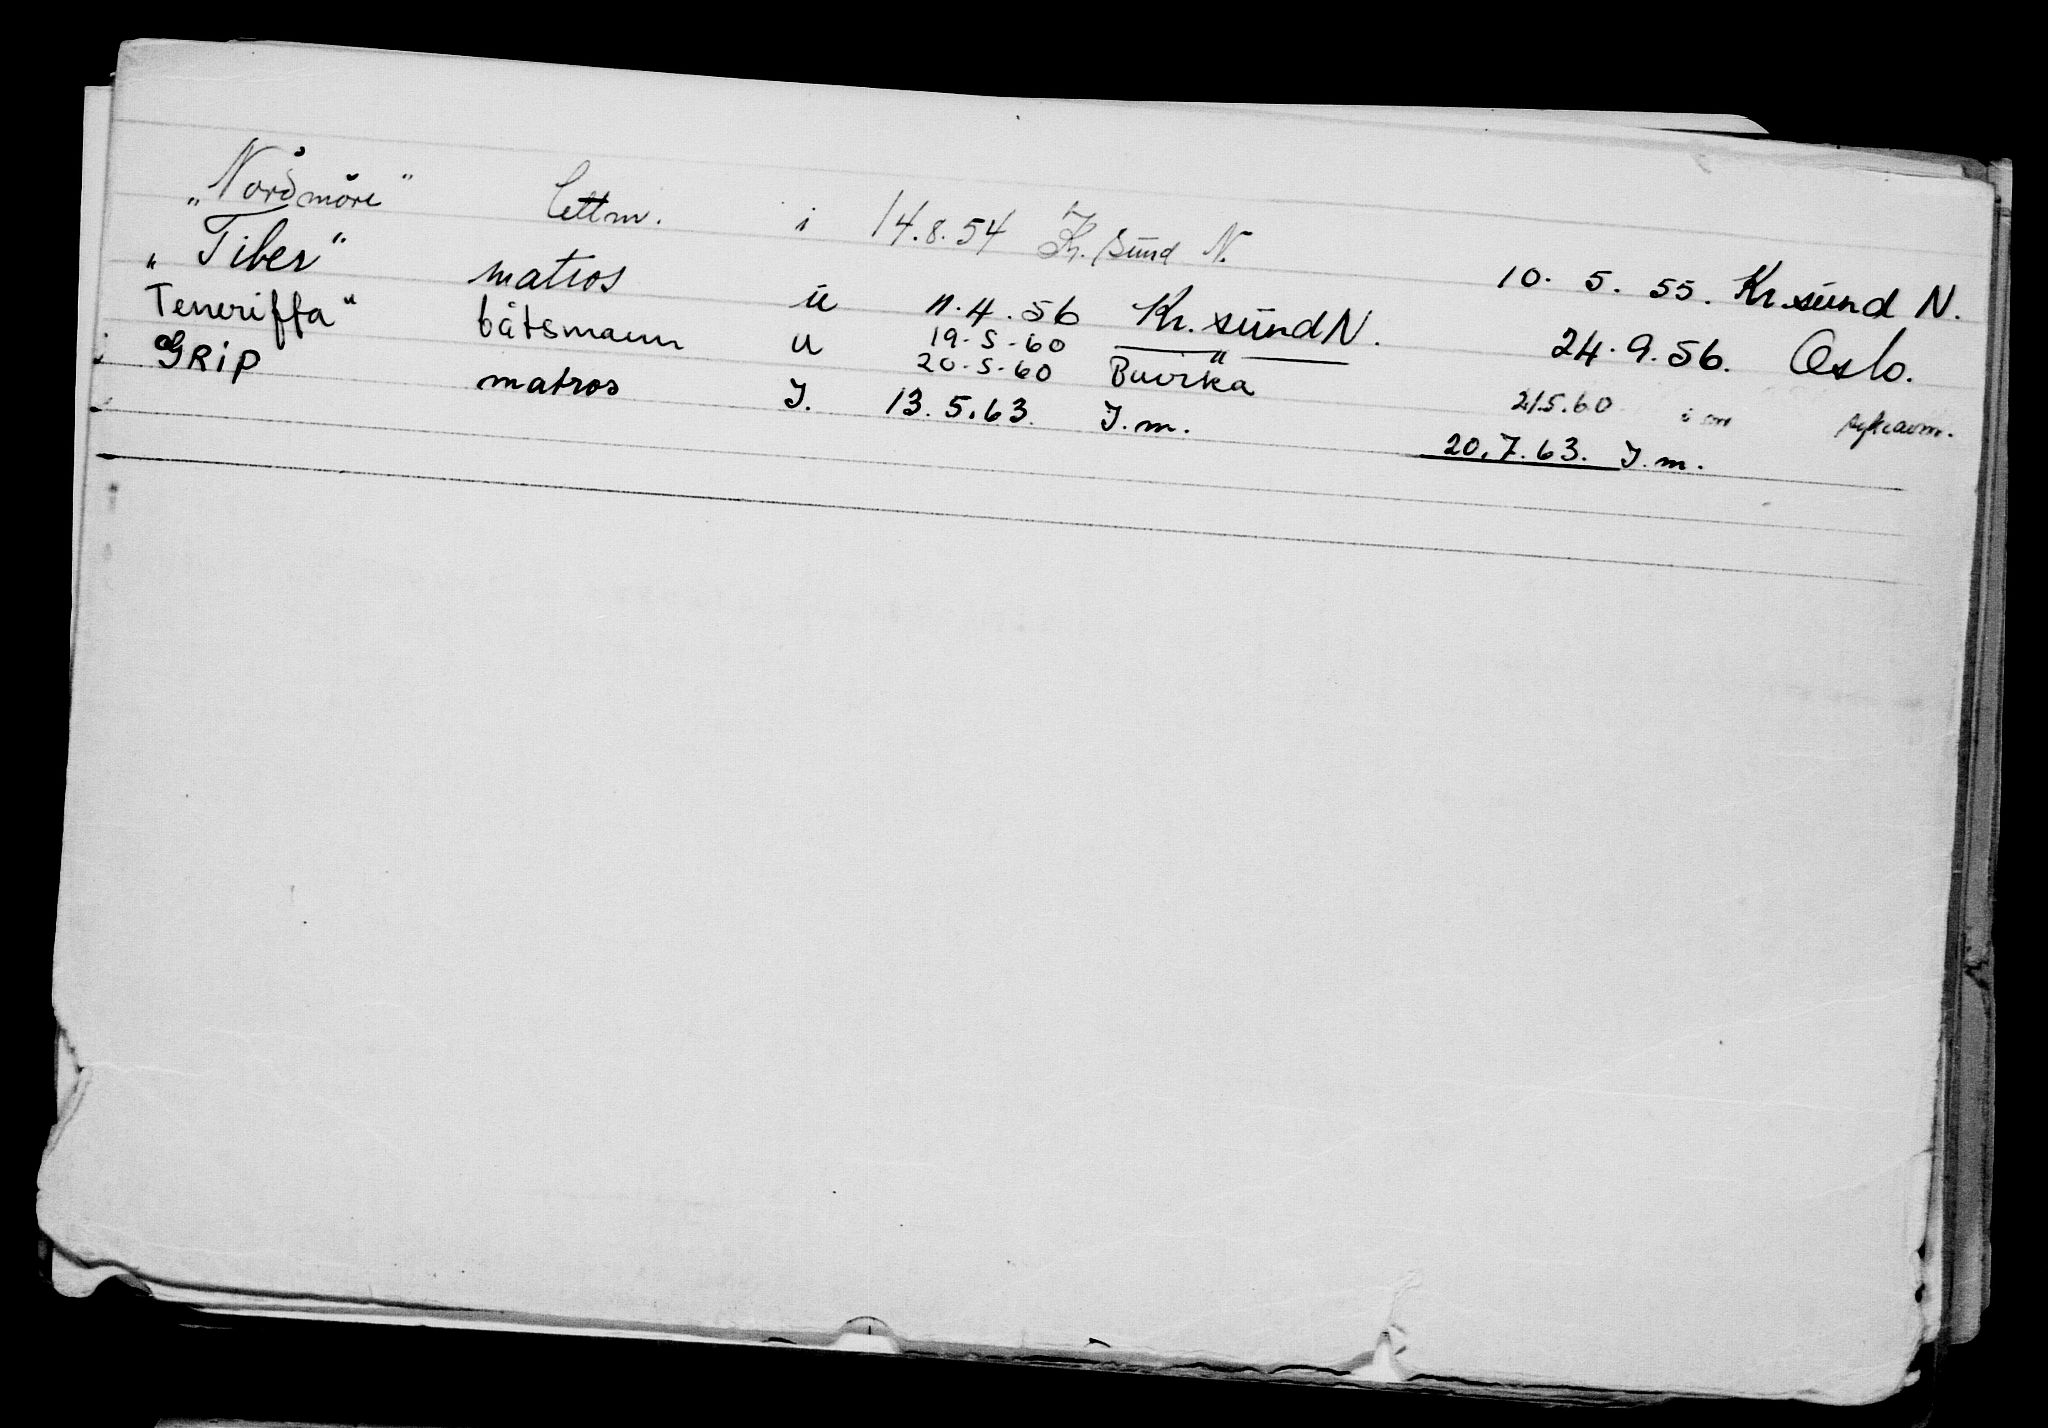 „Nordmöre" lettm. i 14.8.54 Kr.sund N. 10. 5. 55. Kr.sund N.
„Tiber" matros u 11.4.56 Kr.sund N. 24.9.56. Oslo.
Teneriffa" båtsmann u 19.5.60 "
20.5.60 Buvika 21.5.60
GRIP matros J. 13.5.63. J.m. 20.7.63. J.m.